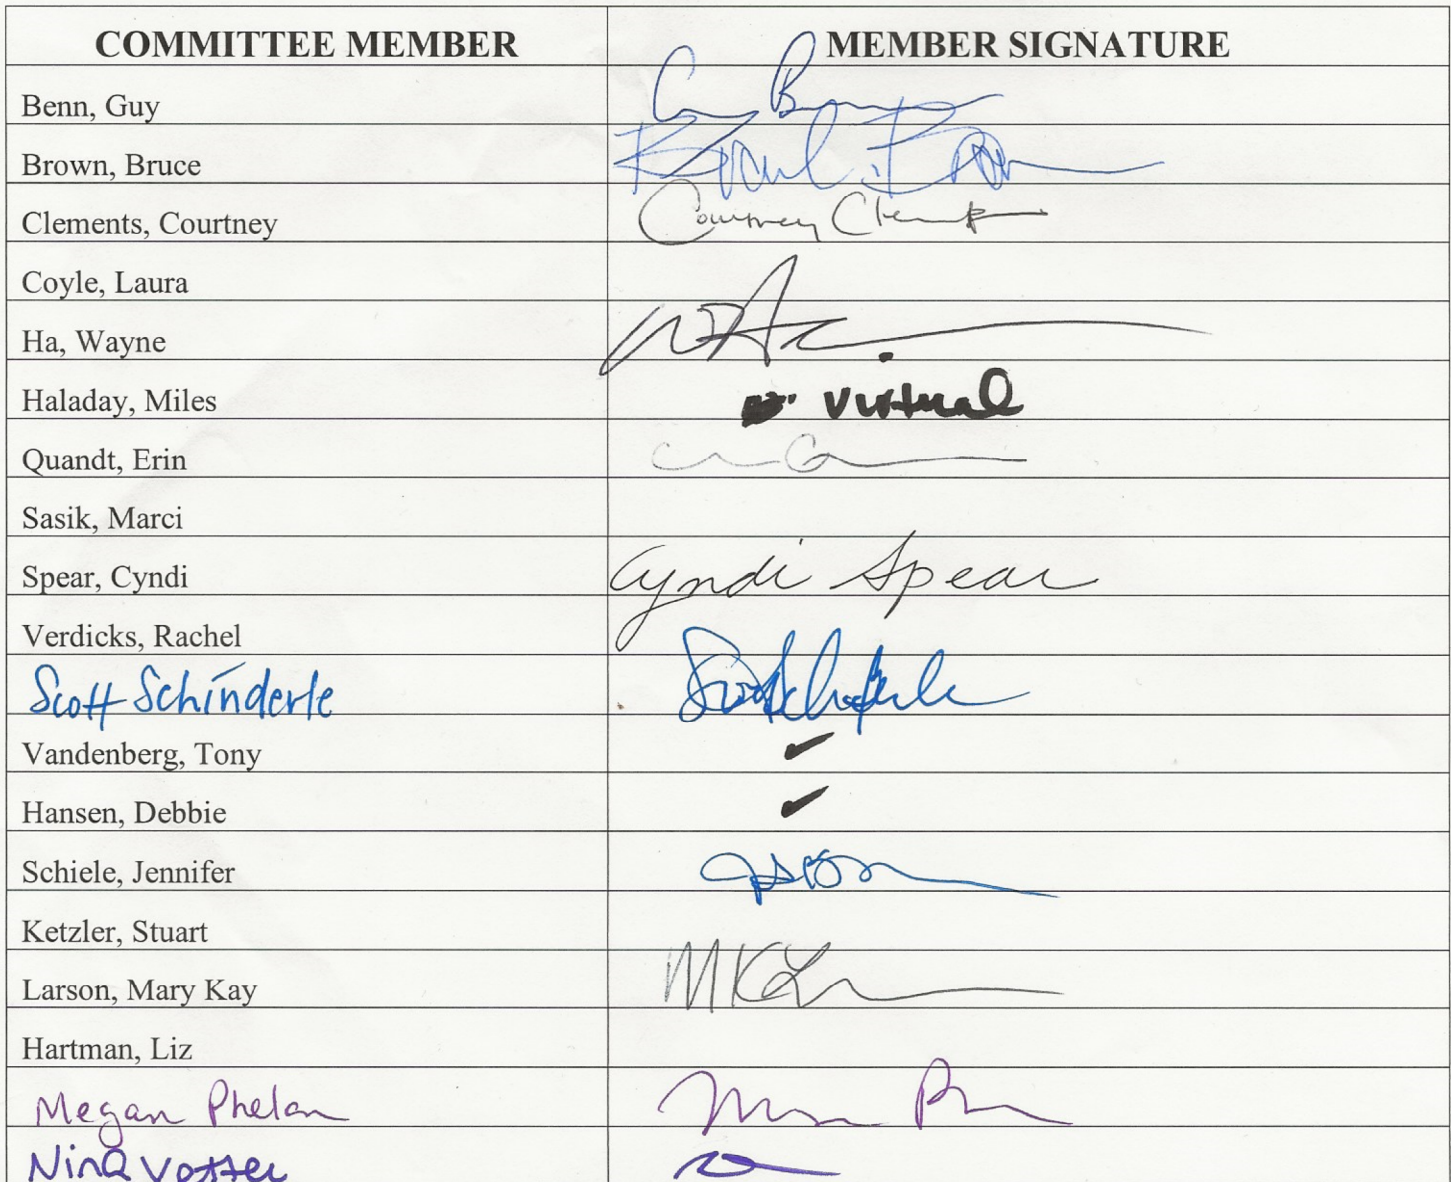 COMMITTEE MEMBER MEMBER SIGNATURE
Benn, Guy
Brown, Bruce
Clements, Courtney Courtney
Coyle, Laura
Ha, Wayne
Haladay, Miles virtual
Quandt, Erin
Sasik, Marci
Spear, Cyndi Cyndi Spear
Verdicks, Rachel
Scott Schinderle
Vandenberg, Tony ✓
Hansen, Debbie ✓
Schiele, Jennifer
Ketzler, Stuart
Larson, Mary Kay
Hartman, Liz
Megan Phelan
Nina